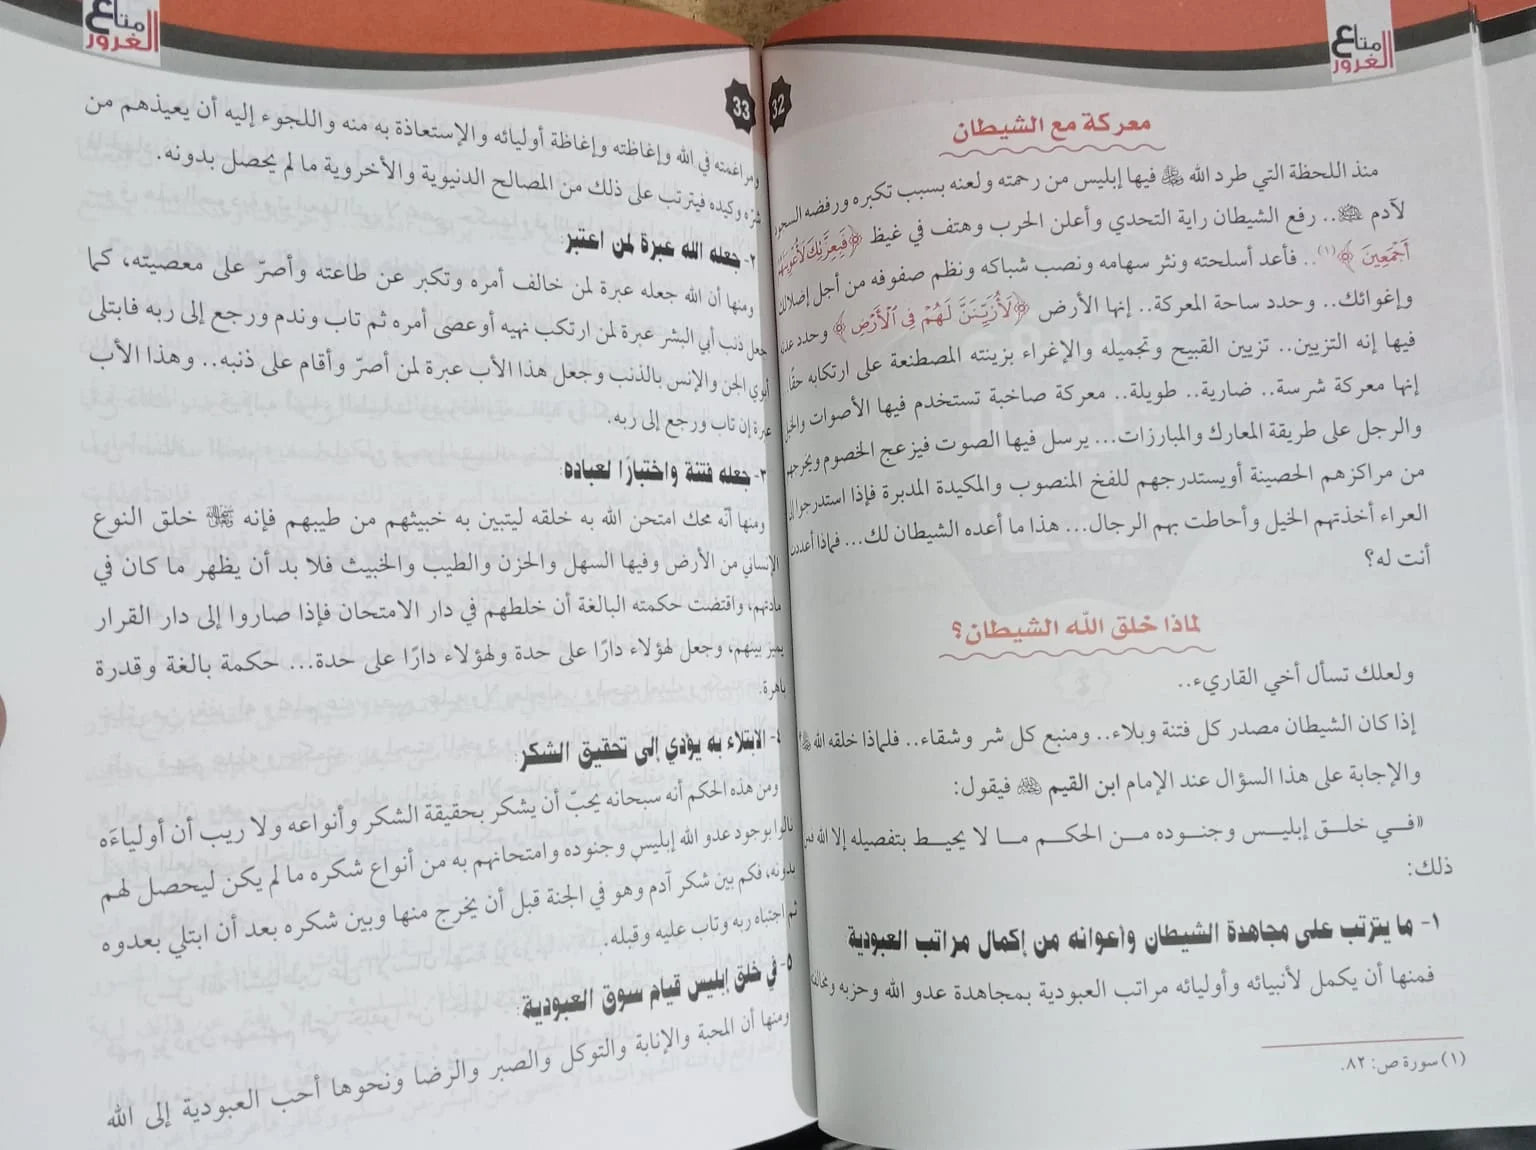 متاع الغرور
32
معركة مع الشيطان
منذ اللحظة التي طرد الله ﷻ فيها إبليس من رحمته ولعنه بسبب تكبره ورفضه السجود
لآدم ﷺ.. رفع الشيطان راية التحدي وأعلن الحرب وهتف في غيظ ﴿فَبِعِزَّتِكَ لَأُغْوِيَنَّهُمْ
أَجْمَعِينَ﴾(١).. فأعد أسلحته ونثر سهامه ونصب شباكه ونظم صفوفه من أجل إضلالك
وإغوائك.. وحدد ساحة المعركة.. إنها الأرض ﴿لَأُزَيِّنَنَّ لَهُمْ فِي ٱلْأَرْضِ﴾ وحدد عدته
فيها إنه التزيين.. تزيين القبيح وتجميله والإغراء بزينته المصطنعة على ارتكابه حقًا..
إنها معركة شرسة.. ضارية.. طويلة.. معركة صاخبة تستخدم فيها الأصوات والخيل
والرجل على طريقة المعارك والمبارزات... يرسل فيها الصوت فيزعج الخصوم ويخرجهم
من مراكزهم الحصينة أويستدرجهم للفخ المنصوب والمكيدة المدبرة فإذا استدرجوا إلى
العراء أخذتهم الخيل وأحاطت بهم الرجال... هذا ما أعده الشيطان لك... فماذا أعددت
أنت له؟
لماذا خلق الله الشيطان؟
ولعلك تسأل أخي القاريء..
إذا كان الشيطان مصدر كل فتنة وبلاء.. ومنبع كل شر وشقاء.. فلماذا خلقه الله
والإجابة على هذا السؤال عند الإمام ابن القيم فيقول:
«فـي خلـق إبليـس وجنـوده مـن الحكـم مـا لا يحيـط بتفصيله إلا الله فمن
ذلك:
١- ما يترتب على مجاهدة الشيطان وأعوانه من إكمال مراتب العبودية
فمنها أن يكمل لأنبيائه وأوليائه مراتب العبودية بمجاهدة عدو الله وحزبه ومخالفته
(١) سورة ص: ٨٢.
متاع الغرور
33
ومراغمته في الله وإغاظته وإغاظة أوليائه والإستعاذة به منه واللجوء إليه أن يعيذهم من
شرّه وكيده فيترتب على ذلك من المصالح الدنيوية والأخروية ما لم يحصل بدونه.
٢- جعله الله عبرة لمن اعتبر:
ومنها أن الله جعله عبرة لمن خالف أمره وتكبر عن طاعته وأصرّ على معصيته، كما
جعل ذنب أبي البشر عبرة لمن ارتكب نهيه أوعصى أمره ثم تاب وندم ورجع إلى ربه فابتلى
أبوي الجن والإنس بالذنب وجعل هذا الأب عبرة لمن أصرّ وأقام على ذنبه.. وهذا الأب
عبرة إن تاب ورجع إلى ربه.
٣- جعله فتنة واختبارًا لعباده:
ومنها أنّه محك امتحن الله به خلقه ليتبين به خبيثهم من طيبهم فإنه ﷻ خلق النوع
الإنساني من الأرض وفيها السهل والحزن والطيب والخبيث فلا بد أن يظهر ما كان في
مادتهم، واقتضت حكمته البالغة أن خلطهم في دار الامتحان فإذا صاروا إلى دار القرار
يميز بينهم، وجعل لهؤلاء دارًا على حدة ولهؤلاء دارًا على حدة... حكمة بالغة وقدرة
باهرة.
٤- الابتلاء به يؤدي إلى تحقيق الشكر:
ومن هذه الحكم أنه سبحانه يحبّ أن يشكر بحقيقة الشكر وأنواعه ولا ريب أن أولياءَه
نالوا بوجود عدو الله إبليس وجنوده وامتحانهم به من أنواع شكره ما لم يكن ليحصل لهم
بدونه، فكم بين شكر آدم وهو في الجنة قبل أن يخرج منها وبين شكره بعد أن ابتلي بعدوه
ثم اجتباه ربه وتاب عليه وقبله.
٥- في خلق إبليس قيام سوق العبودية:
ومنها أن المحبة والإنابة والتوكل والصبر والرضا ونحوها أحب العبودية إلى الله